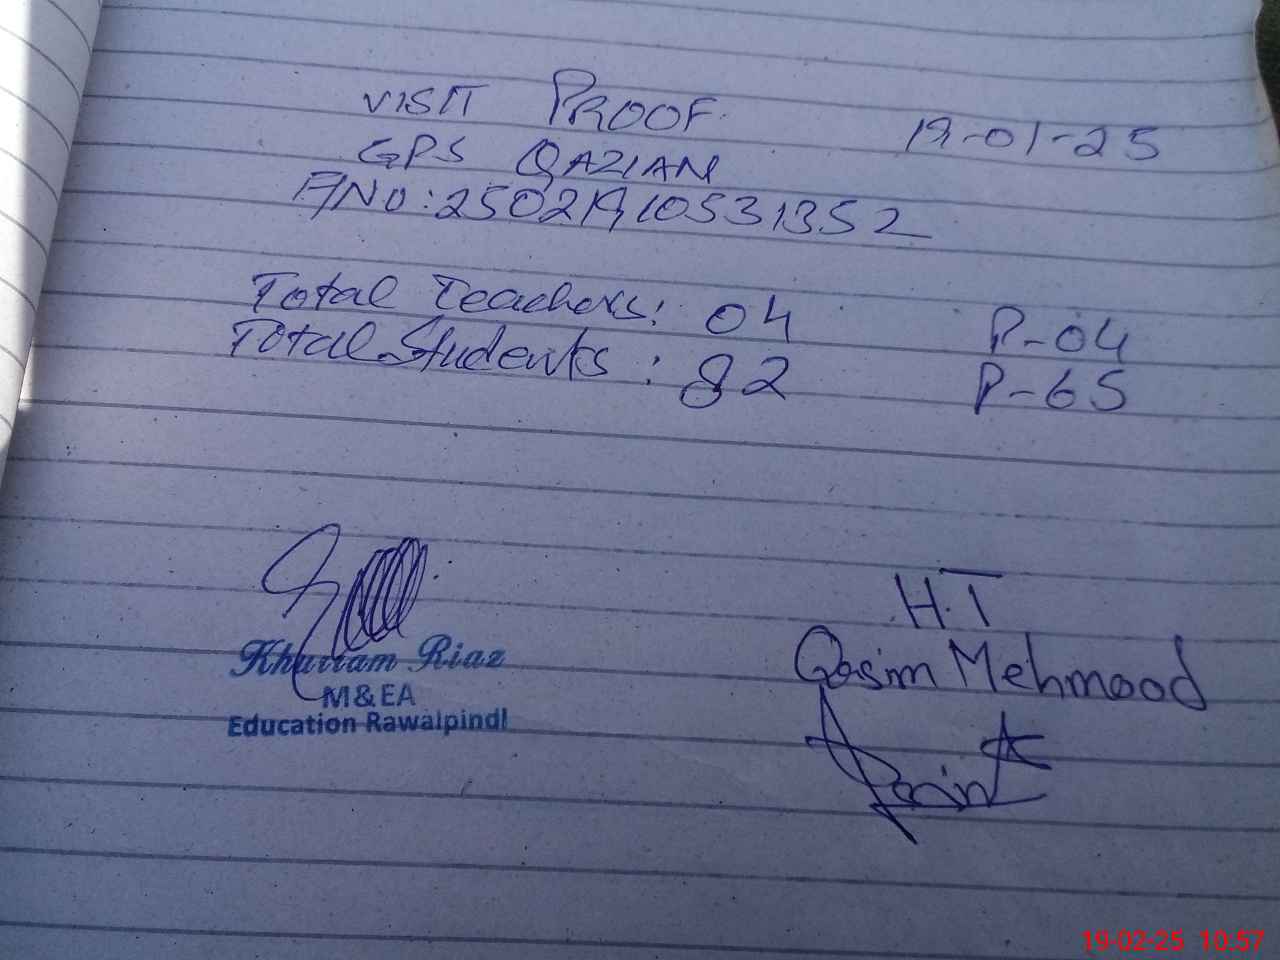 VISIT PROOF
19-01-25
GPS QAZIAN
A/NO: 25021910531352
Total Teachers: 04 P-04
Total Students: 82 P-65
Khurram Riaz
M&EA
Education Rawalpindi
H.T
Qasim Mehmood
19-02-25 10:57